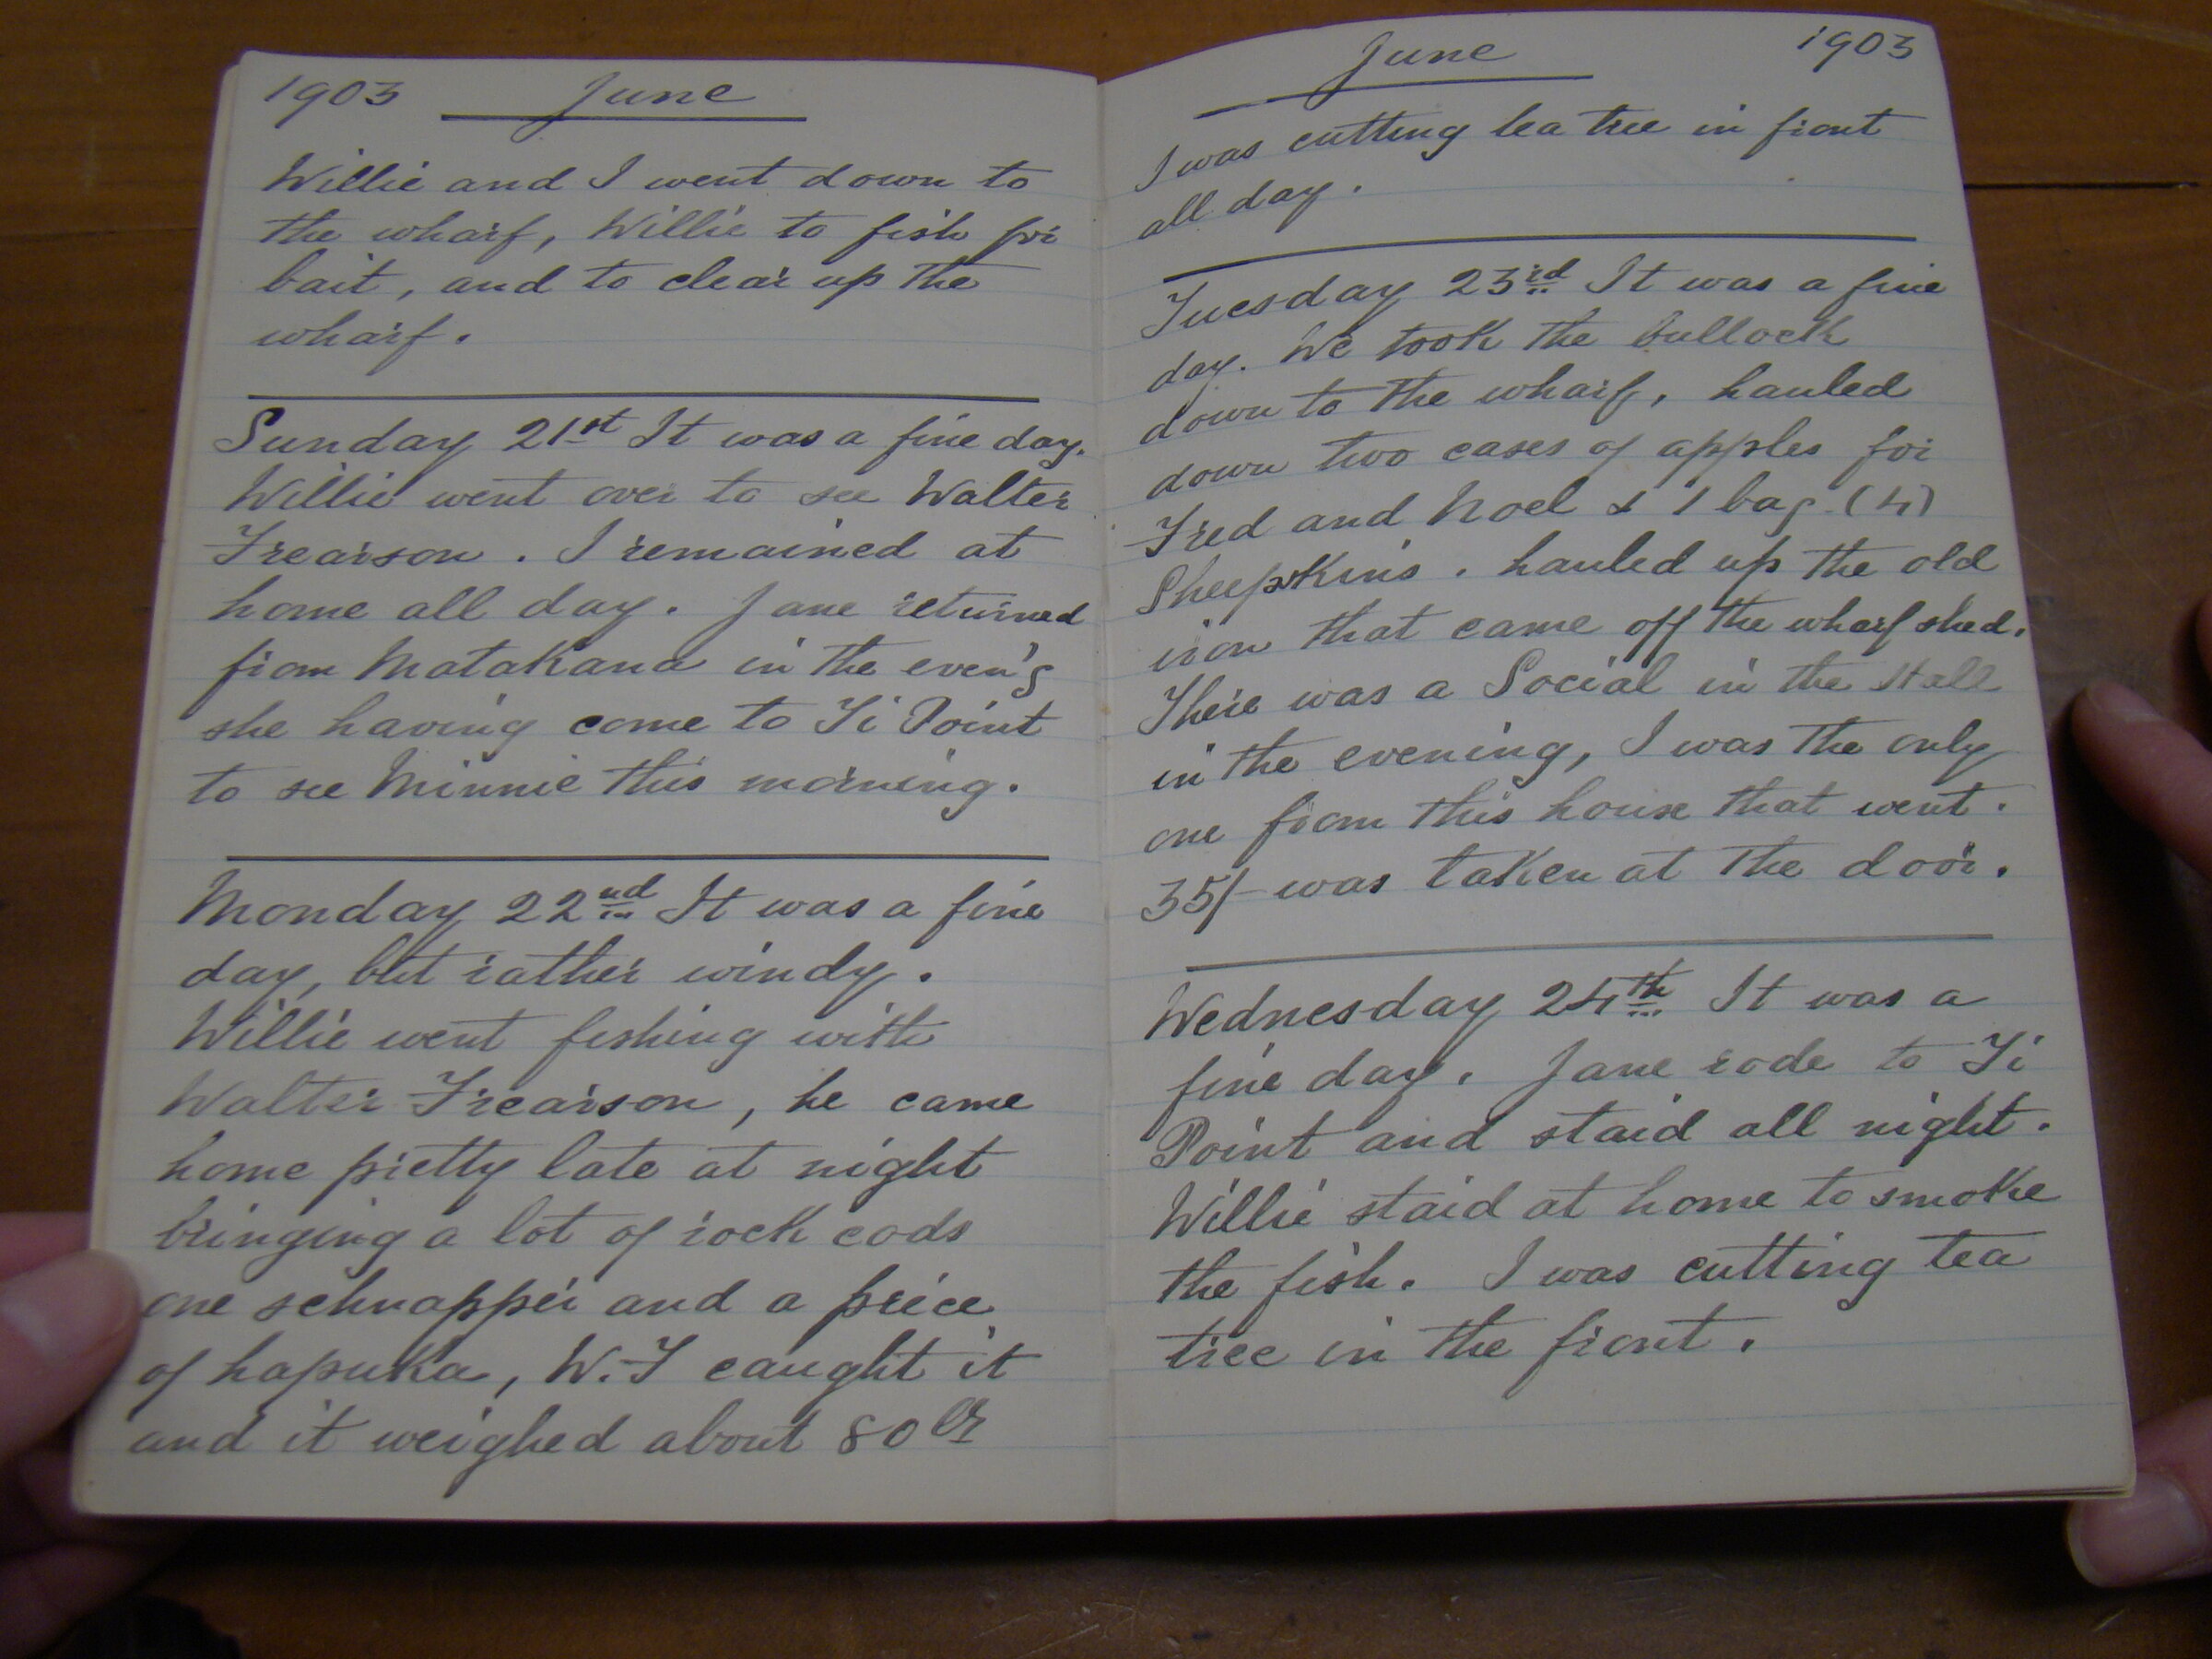 1903 June
Willie and I went down to
the wharf, Willie to fish for
bait, and to clear up the
wharf.
Sunday 21st It was a fine day.
Willie went over to see Walter
Frearson. I remained at
home all day. Jane returned
from Matakana in the even'g
she having come to Ti Point
to see Minnie this morning.
Monday 22nd It was a fine
day, but rather windy.
Willie went fishing with
Walter Frearson, he came
home pretty late at night
bringing a lot of rock cods
one schnapper and a piece
of hapuka, W.F caught it
and it weighed about 80 lbs
June 1903
I was cutting tea tree in front
all day.
Tuesday 23rd It was a fine
day. We took the bullock
down to the wharf, hauled
down two cases of apples for
Fred and Noel & 1 bag (4)
Sheepskins. hauled up the old
iron that came off the wharf shed.
There was a Social in the Hall
in the evening, I was the only
one from this house that went.
35/- was taken at the door.
Wednesday 24th It was a
fine day. Jane rode to Ti
Point and staid all night.
Willie staid at home to smoke
the fish. I was cutting tea
tree in the front.